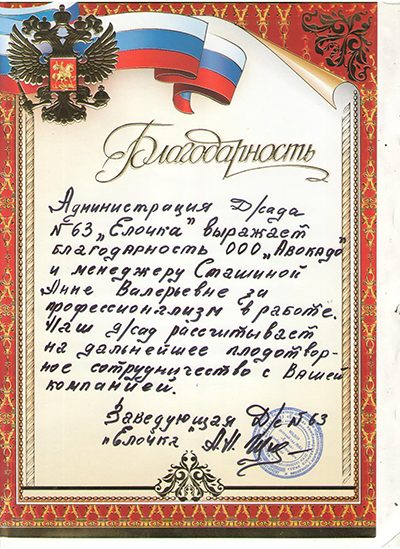 Благодарность
Администрация Д/сада
№63 „Елочка" выражает
благодарность ООО „Авокадо"
и менеджеру Сташиной
Анне Валерьевне за
профессионализм в работе.
Наш д/сад рассчитывает
на дальнейшее плодотвор-
ное сотрудничество с Вашей
компанией.
Заведующая Д/с №63
„Елочка" А.Н.